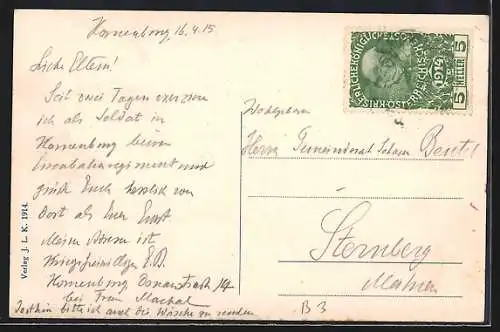 Korneuburg 16.4.15
Liebe Eltern!
Seit zwei Tagen exerziere
ich als Soldat in
Korneuburg beim
Eisenbahnregiment und
grüße Euch herzlich von
dort als Euer Ernst.
Meine Adresse ist
Kriegsfreiwilliger E.B.
Korneuburg Donaustraße
bei Frau Machat
bitte ich auch die Wäsche zu senden
Verlag J. L. K. 1914.
KAISERLICHE KÖNIGLICHE ÖSTERREICHISCHE
1914
5 HELLER 5
Wohlgeboren
Herrn Gemeinderat Beutel
Sternberg
Mähren
B3